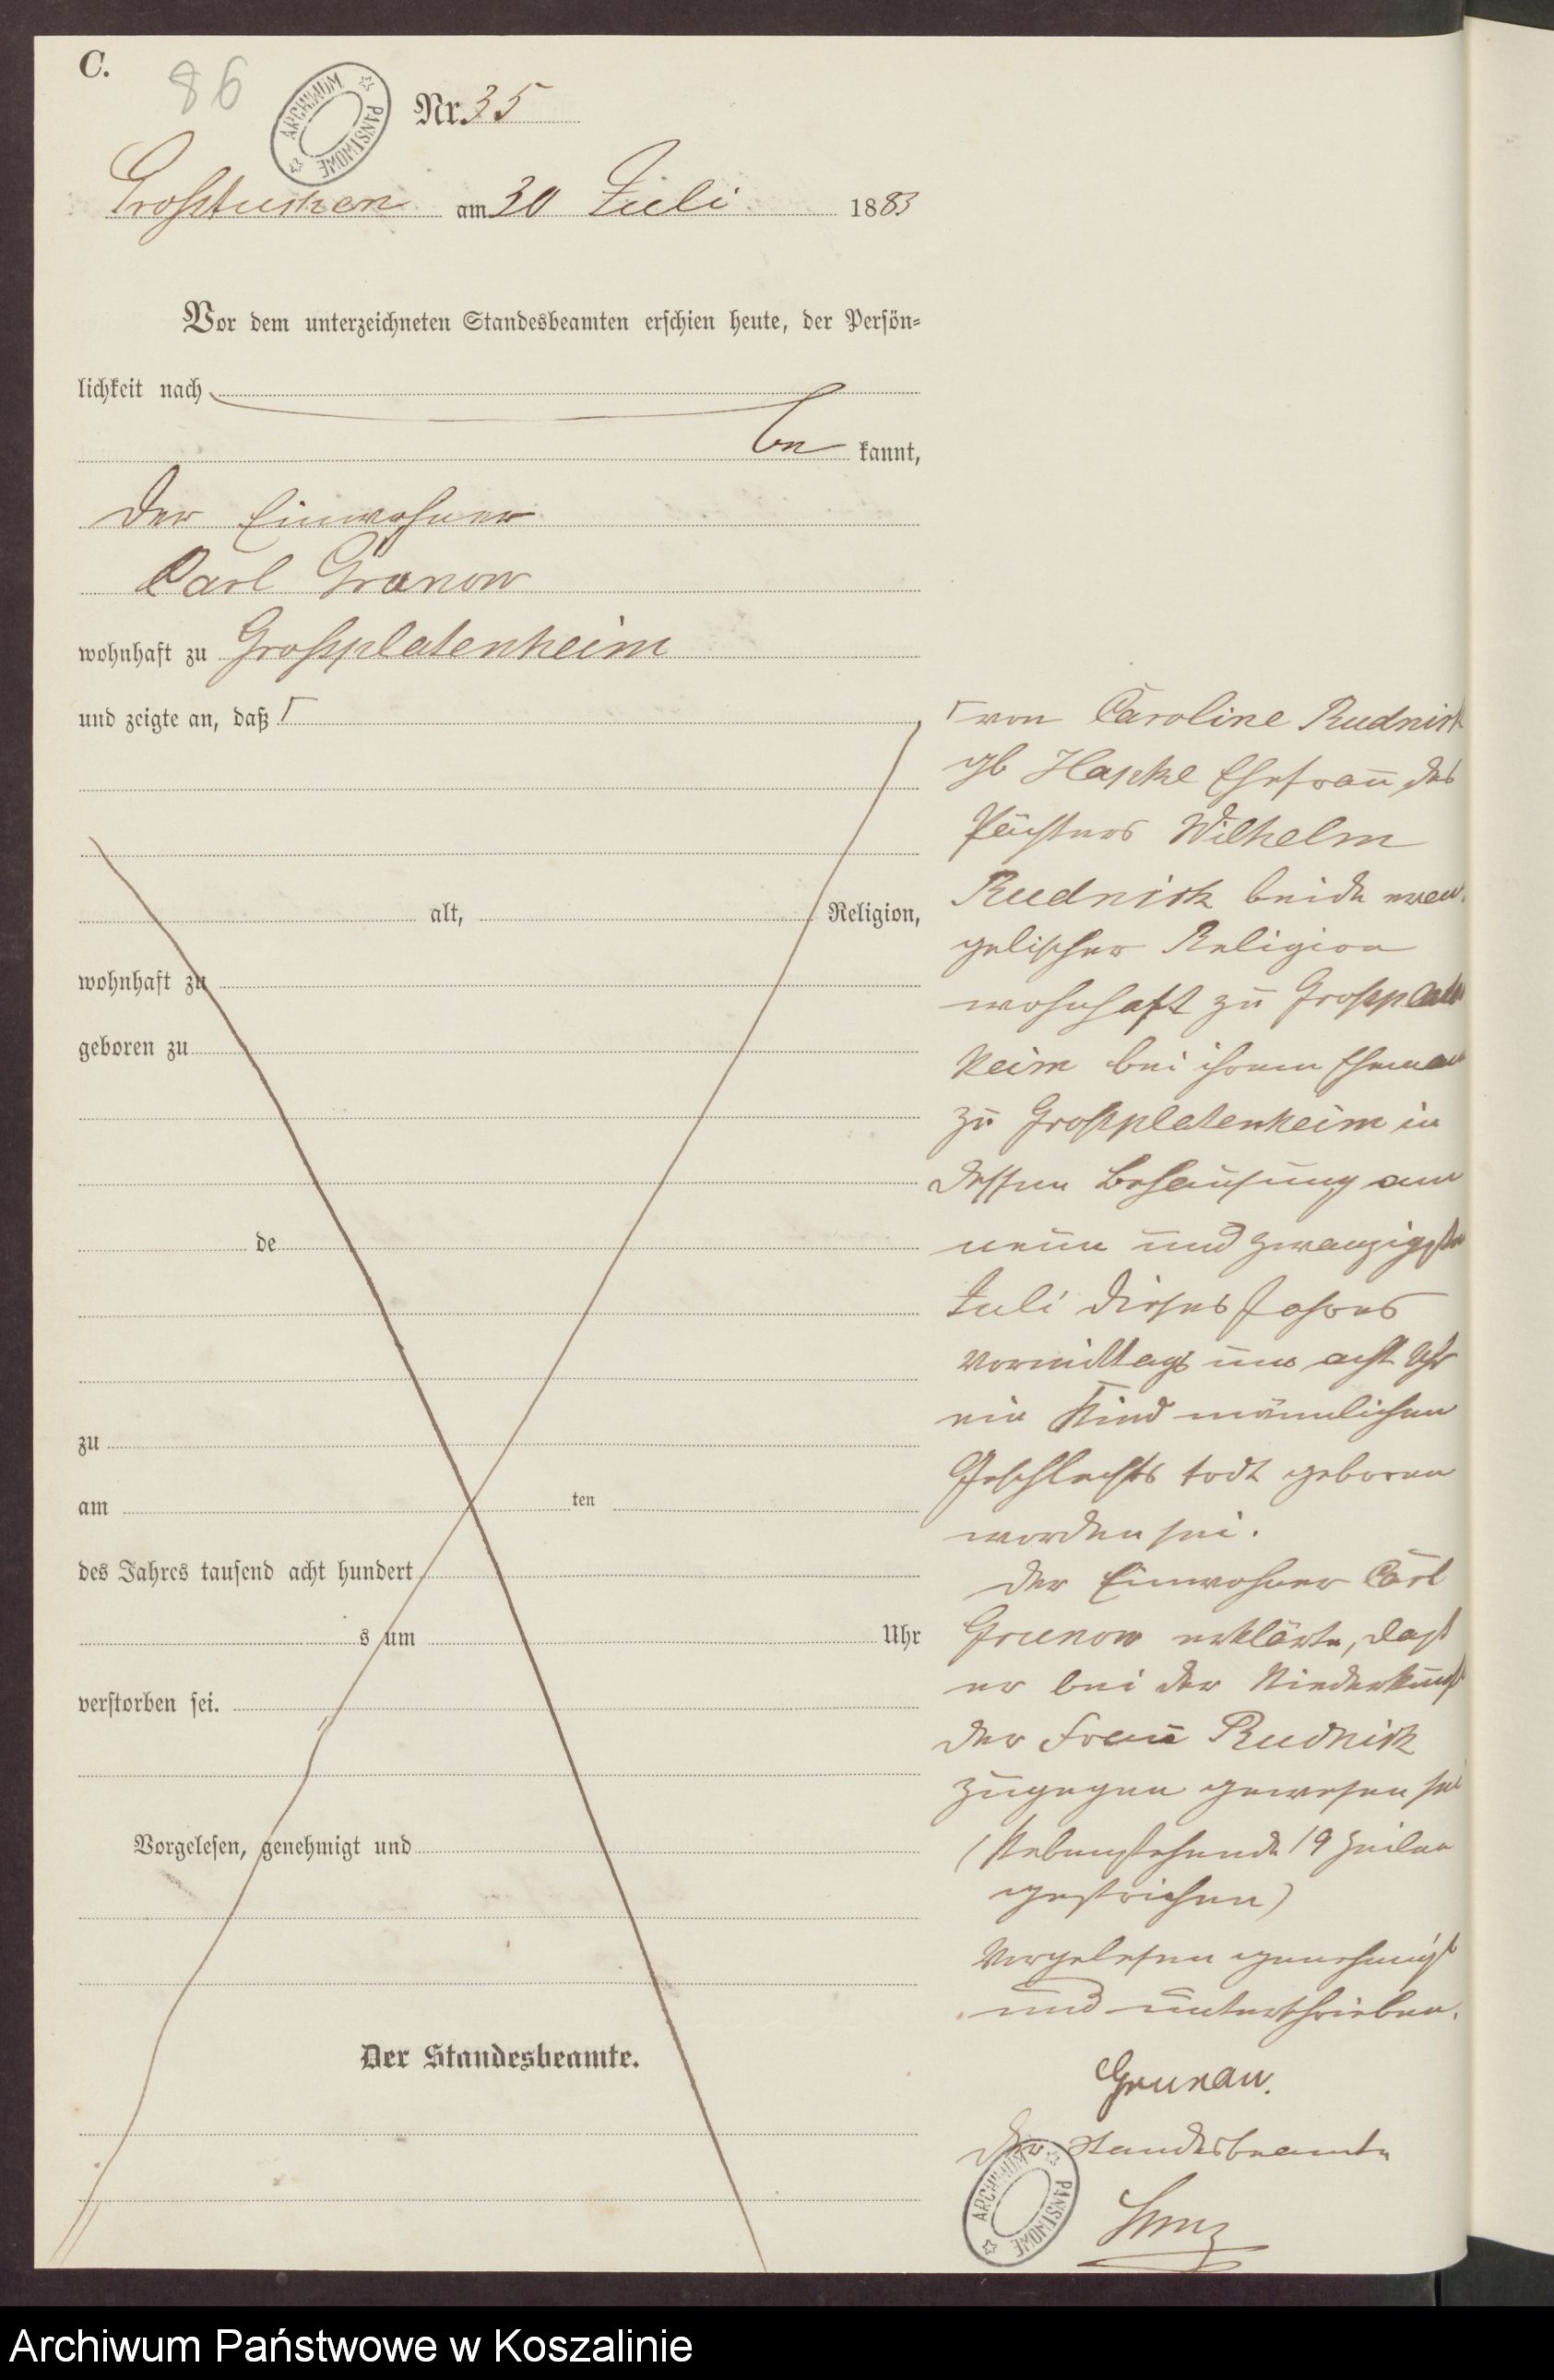 C.
86
ARCHIWUM PAŃSTWOWE
Nr. 35
Großtuchen am 30 Juli 1883
Vor dem unterzeichneten Standesbeamten erschien heute, der Persön-
lichkeit nach
be kannt,
der Einwohner
Carl Grunow
wohnhaft zu Großplatenheim
und zeigte an, daß Γ
alt, Religion,
wohnhaft zu
geboren zu
de
zu
am ten
des Jahres tausend acht hundert
s um Uhr
verstorben sei.
Vorgelesen, genehmigt und
Der Standesbeamte.
Γ von Caroline Rudnick
gb Ehefrau des
Pächters Wilhelm
Rudnick beide evan-
gelischer Religion
wohnhaft zu Großplaten
heim bei ihrem Eheman
zu Großplatenheim in
dessen Behausung am
neun und zwanzigsten
Juli dieses Jahres
Vormittags um acht Uhr
ein Kind männlichen
Geschlechts todt geboren
worden sei.
Der Einwohner Carl
Grunow erklärte, daß
er bei der Niederkunft
der Frau Rudnick
zugegen gewesen sei
(Nebenstehende 19 Zeilen
gestrichen)
Vorgelesen genehmigt
und unterschrieben.
Grunau.
Der Standesbeamte
ARCHIWUM PAŃSTWOWE
Archiwum Państwowe w Koszalinie